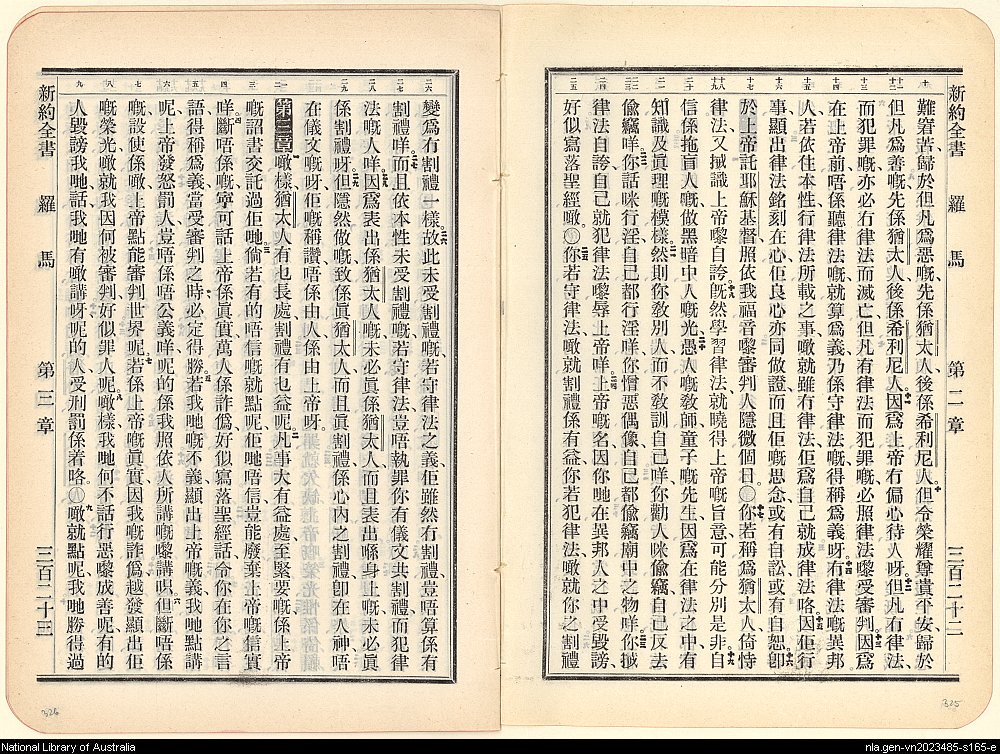 新約全書 羅馬 第二章 三百二十二
難窘苦歸於但凡爲惡嘅、先係猶太人、後係希利尼人、但令榮耀尊貴平安、歸於
但凡爲善嘅先係猶太人、後係希利尼人、因爲上帝冇偏心待人呀、但凡冇律法、
而犯罪嘅、亦必冇律法而滅亡、但凡有律法而犯罪嘅、必照律法嚟受審判、因爲
在上帝前、唔係聽律法嘅、就算爲義、乃係守律法嘅、得稱爲義呀、冇律法嘅異邦
人、若依住本性行律法所載之事、噉就雖冇律法、佢爲自己就成律法咯、因佢行
事、顯出律法銘刻在心、佢良心亦同做證、而且佢嘅思念、或有自訟、或有自恕、卽
於上帝託耶穌基督、照依我福音嚟審判人隱微個日、〇你若稱爲猶太人、倚恃
律法、又揻識上帝嚟自誇、旣然學習律法、就曉得上帝嘅旨意、可能分別是非、自
信係拖盲人嘅、做黑暗中人嘅光、愚人嘅敎師、童子嘅先生、因爲在律法之中、有
知識及眞理嘅模樣、然則你敎別人、而不敎訓自己咩、你勸人咪偷竊、自己反去
偷竊咩、你話咪行淫、自己都行淫咩、你憎惡偶像、自己都偷竊廟中之物咩、你揻
律法自誇、自己就犯律法嚟辱上帝咩、上帝嘅名、因你哋在異邦人之中受毀謗、
好似寫落聖經噉、〇你若守律法、噉就割禮係有益、你若犯律法、噉就你之割禮
新約全書 羅馬 第三章 三百二十三
變爲冇割禮一樣、故此未受割禮嘅、若守律法之義、佢雖然冇割禮、豈唔算係有
割禮咩、而且依本性未受割禮嘅、若守律法、豈唔執罪你有儀文共割禮、而犯律
法嘅人咩、因爲表出係猶太人嘅、未必眞係猶太人、而且表出喺身上嘅、未必眞
係割禮呀、但隱然做嘅、致係眞猶太人、而且眞割禮係心內之割禮、卽在人神、唔
在儀文嘅呀、佢嘅稱讚、唔係由人、係由上帝呀、
第三章 噉樣猶太人有乜長處、割禮有乜益呢、凡事大有益處、至緊要嘅、係上帝
嘅詔書交託過佢哋、倘若有的唔信嘅、就點呢、佢哋唔信、豈能廢棄上帝嘅信實
咩、斷唔係嘅、寧可話上帝係眞實、萬人係詐僞、好似寫落聖經話、令你在你之言
語得稱爲義、當受審判之時、必定得勝、若我哋嘅不義、顯出上帝嘅義、我哋點講
呢、上帝發怒罰人、豈唔係唔公義咩、呢的係我照依人所講嘅嚟講唄、但斷唔係
嘅、設使係噉、上帝點能審判世界呢、若係上帝嘅眞實、因我嘅詐僞越發顯出佢
嘅榮光、噉就我因何被審判、好似罪人呢、噉樣我哋何不話行惡嚟成善呢、有的
人毀謗我哋、話我哋有噉講呀、呢的人受刑罰係着咯、〇噉就點呢、我哋勝得過
326
325
National Library of Australia
nla.gen-vn2023485-s165-e